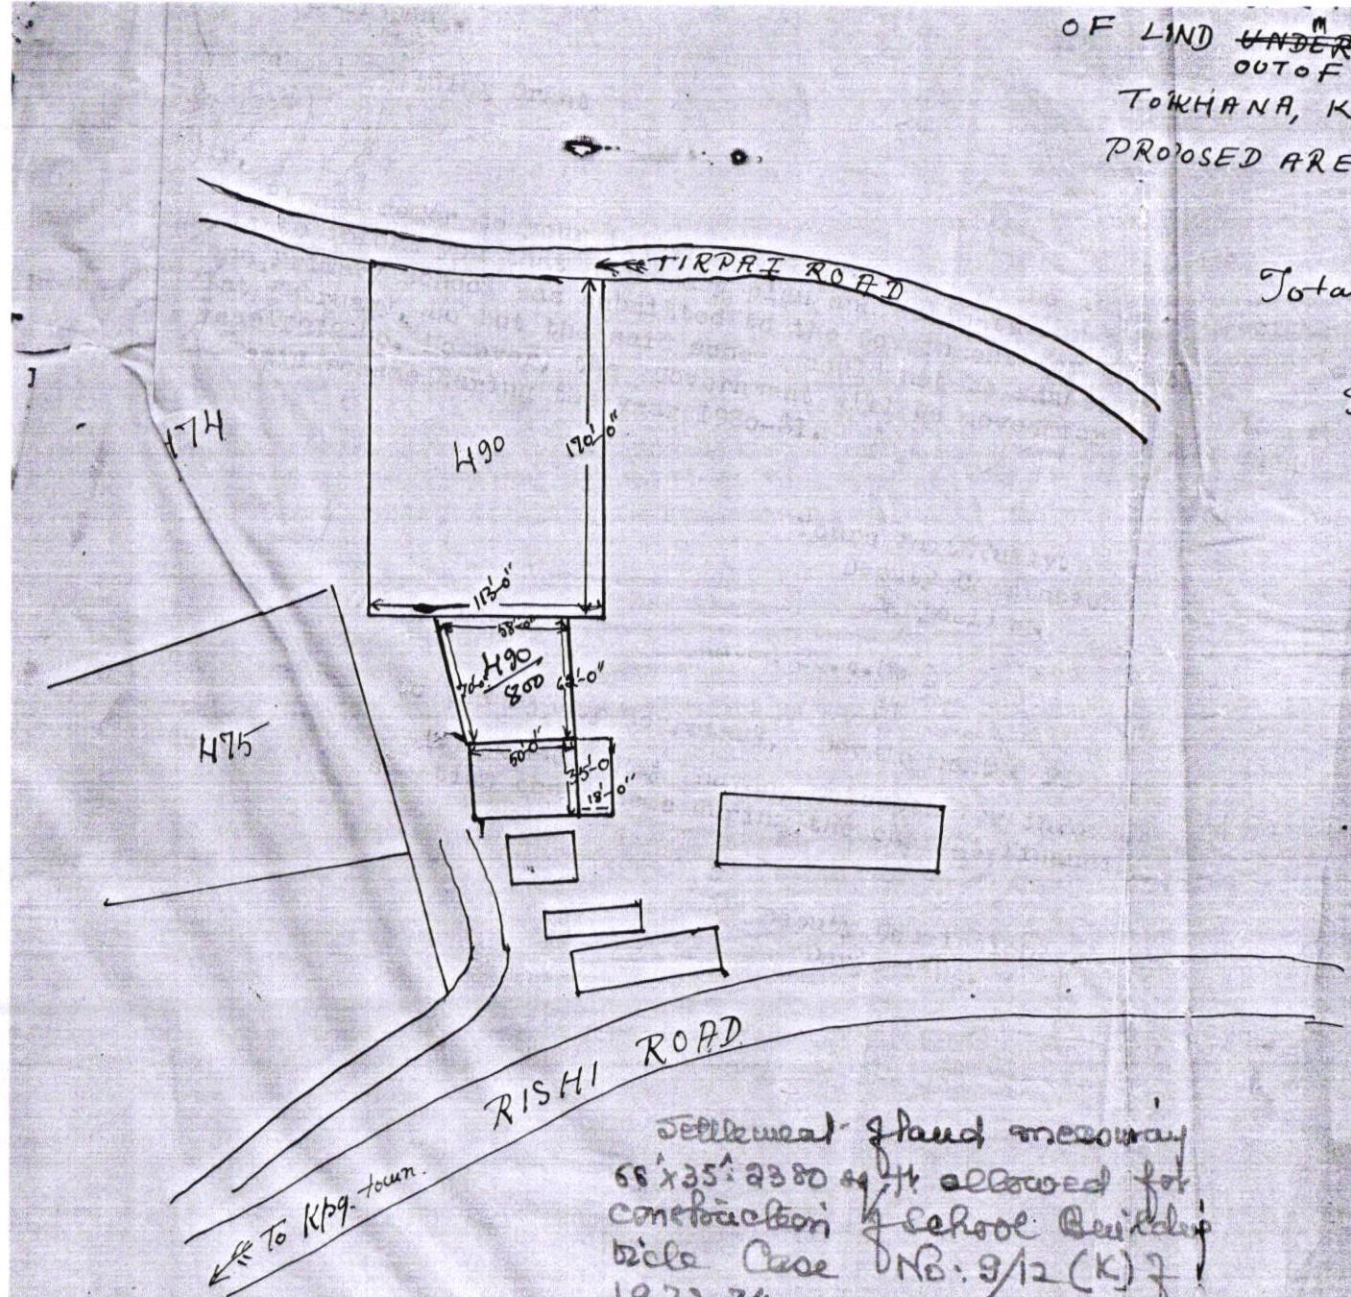 OF LIND UNDER
OUT OF
TOKHANA, K
PROOSED ARE
TIRPAI ROAD
Tota
474
490
170'-0"
113'-0"
58'-0"
490
800
70-0"
475
50'-0"
35'-0
18'-0"
RISHI ROAD
To Kpg. town.
Settlement of land measuring
68'x35'= 2380 sq ft allowed for
construction of School Building
vide Case No: 9/12 (K) of